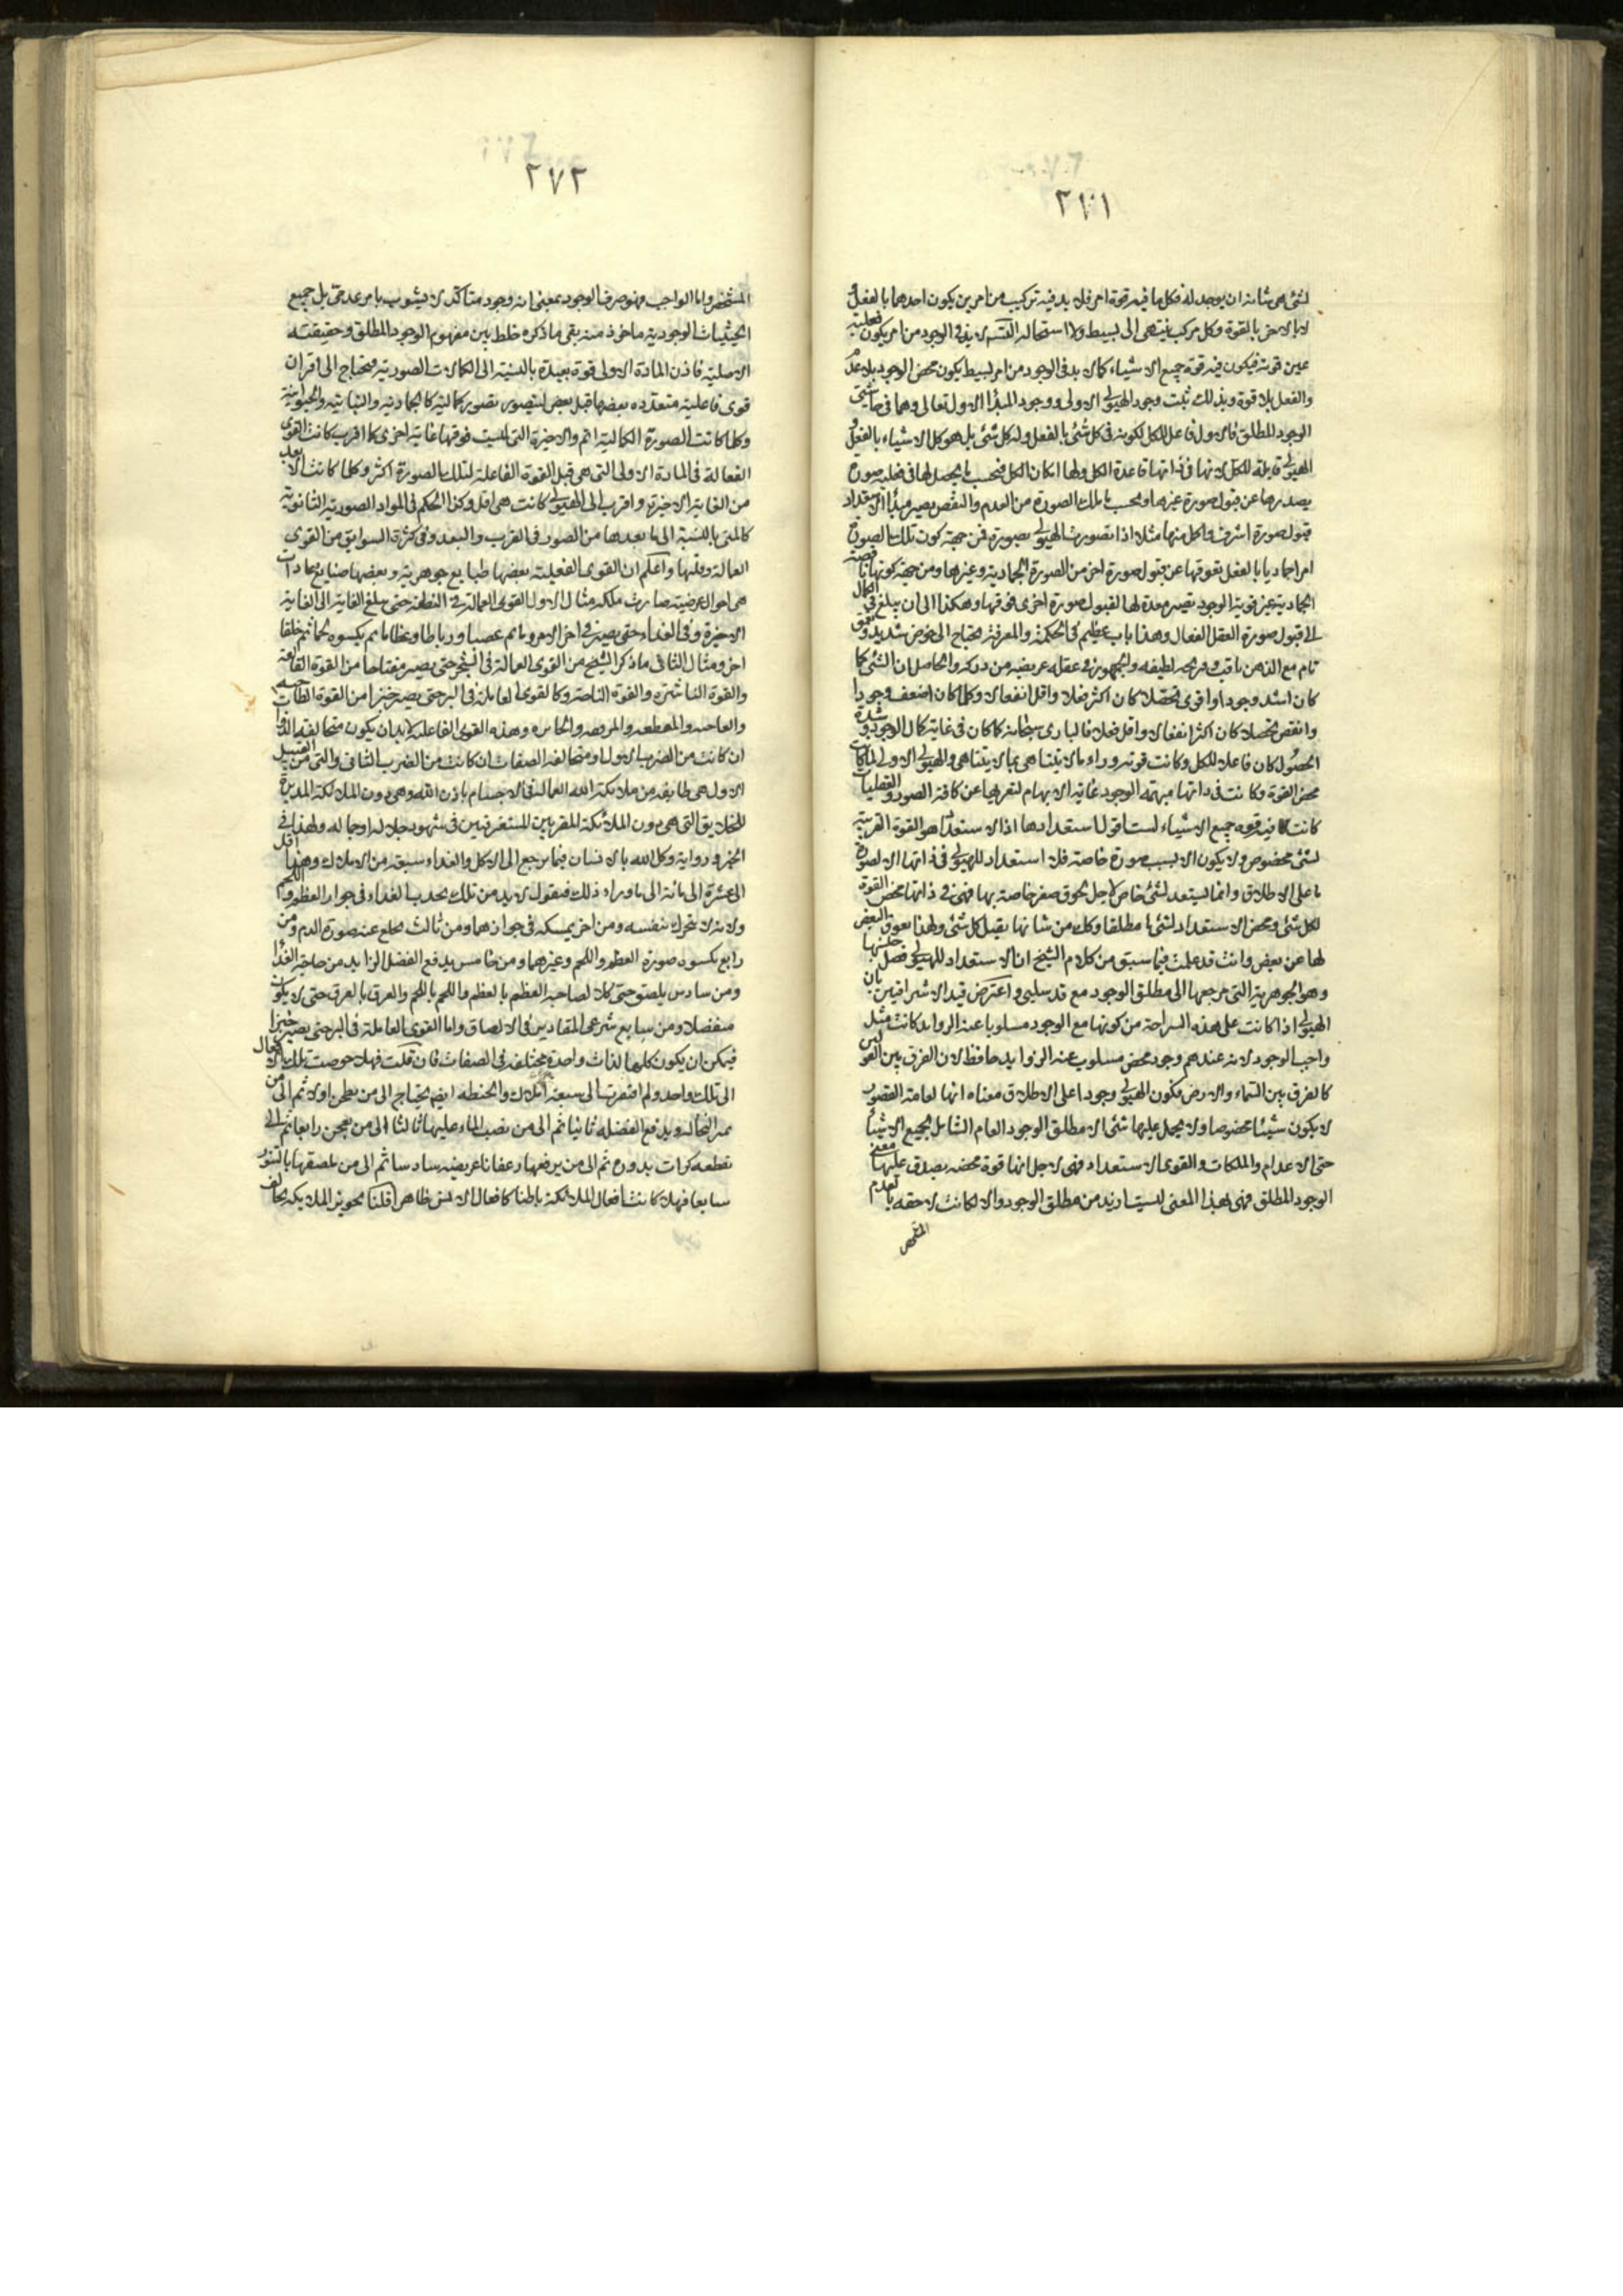 ٢٧١
لشئ هى شانه ان يوجد له فكل ما فيه قوة امر فلا بد فيه تركيب من امرين يكون احدهما بالفعل و
الاخر بالقوة وكل مركب ينتهى الى بسيط ولا استحالة التسلسل لا بد فى الوجود من امر يكون فعليته
عين قوته فيكون فيه قوة جميع الاشياء كما لا بد فى الوجود من امر بسيط يكون محض الوجود بلا عدم
والفعل بلا قوة وبذلك ثبت وجود الهيولى الاولى ووجود المبدأ الاول تعالى وهما فى حاشيتى
الوجود المطلق فالاول فاعل للكل لكونه فى كل شئ بالفعل وله كل شئ بل هو كل الاشياء بالفعل و
الهيولى قابلة للكل لانها فى ذاتها فاقدة الكل ولها امكان الكل فبحسب ما يحصل لها فى فعلية صورة
يصدرها عن قبول صورة غيرها وبحسب ما بتلك الصورة من العدم والنقص يصير مبدأ الاستعداد
قبول صورة اشرف واكمل منها مثلا اذا تصورت الهيولى بصورة فمن جهة كون تلك الصورة
امرا جماديا بالفعل تعوقها عن قبول صورة اخرى من الصورة الجمادية وغيرها ومن جهة كونها ناقصة
الجمادية غير قوية الوجود تصير معدة لها لقبول صورة اخرى فوقها وهكذا الى ان يبلغ فى الكمال
الى قبول صورة العقل الفعال وهذا باب عظيم فى الحكمة والمعرفة يحتاج الى خوض شديد وتعمق
تام مع الذهن ثاقب وقريحة لطيفه والجمهور فى عقله عريضه من دركه والحاصل ان الشئ كلما
كان اشد وجودا واقوى تحصلا كان اكثر فعلا واقل انفعالا وكلما كان اضعف وجودا
وانقص تحصلا كان اكثر انفعالا واقل فعلا فالبارى سبحانه لما كان فى غاية كمال الوجود وشدة
الحصول كان فاعلا للكل وكانت قوته وراء ما لا يتناهى بما لا يتناهى والهيولى الاولى لما كانت
محض القوة وكانت فى ذاتها مبهمة الوجود غاية الابهام لتعريها عن كافة الصور والفعليات
كانت فيه قوة جميع الاشياء لست اقول استعدادها اذ الاستعداد هو القوة القريبة
لشئ مخصوص ولا يكون الا بسبب صورة خاصة فلا استعداد للهيولى فى ذاتها الا لصورة
ما على الاطلاق وانما يستعد لشئ خاص لاجل لحوق صفة خاصة بها فهى فى ذاتها محض القوة
لكل شئ ومحض الاستعداد لشئ ما مطلقا وكان من شانها تقبل كل شئ ولهذا تعوق البعض
لها عن بعض وانت قد علمت فيما سبق من كلام الشيخ ان الاستعداد للهيولى فصل جنسها
وهو الجوهرية التى مرجعها الى مطلق الوجود مع قيد سلبى واعترض قيد الاشراقيين بان
الهيولى اذا كانت على هذه السراحة من كونها مع الوجود مسلوبا عنه الزوايد كانت مثل
واجب الوجود لانه عندهم وجود محض مسلوب عنه الزوايد حافظ لان الفرق بين القو ليس
كالفرق بين السماء والارض فكون الهيولى وجودا على الاطلاق معناه انها لغاية القصور
لا يكون شيئا مخصوصا ولا يحمل عليها شئ الا مطلق الوجود العام الشامل لجميع الاشياء
حتى الاعدام والملكات والقوى الاستعداد فهى لاجل انها قوة محضه يصدق عليها معنى
الوجود المطلق فهى لهذا المعنى ليست ازيد من مطلق الوجود والا لكانت لاحقه بالعدم
٢٧٢
المتمحض واما الواجب فهو صرف الوجود بمعنى انه وجود متاكد لا يشوب بامر عدمى بل جميع
الحيثيات الوجودية ماخوذ منه بقى ما ذكره خلط بين مفهوم الوجود المطلق وحقيقته
الاصلية فاذن المادة الاولى قوة بعيدة بالنسبة الى الكمالات الصورية محتاج الى اقتران
قوى فاعلية متعدده بعضها قبل بعض لتتصور بصور كمالية كالجمادية والنباتية والحيوانية
وكلما كانت الصورة الكمالية اتم والاخيرة التى ليست فوقها غاية اخرى كما اقرب كانت القوى
الفعالة فى المادة الاولى التى هى قبل القوة الفاعلة لتلك الصورة اكثر وكلما كانت الابعد
من الغاية الاخيرة واقرب الى الهيولى كانت هى اقل وكذا الحكم فى المواد الصورية الثانوية
كالمنى بالنسبة الى ما بعدها من الصور فى القرب والبعد وفى كثرة السوابق من القوى
الفعالة وقلتها واعلم ان القوى الفعلية بعضها طبايع جوهرية وبعضها صنايع عادات
هى احوال عرضية صارت ملكه مثال الاول القوى العمالة فى النطفة حتى يبلغ الغاية الى الغاية
الاخيرة وفى الغذاء حتى يصير فى اخر الامر دما ثم عصبا ورباطا وعظاما ثم يكسوه لحما ثم خلقا
اخر ومثال الثانى ما ذكر الشيخ من القوى العمالة فى الشجر حتى يصير مفتاحا من القوة القالعة
والقوة الناشرة والقوة الناحتة وكالقوى الفاعلة فى البر حتى يصير خبزا من القوة الطاحنة
والعاجنه والمقطعه والمرققه والخابزه وهذه القوى الفاعلة لا بد ان يكون متخالفة الذات
ان كانت من الضرب الاول او متخالفه الصفات ان كانت من الضرب الثانى والتى من القبيل
الاول هى طايفه من ملائكة الله العمالة فى الاجسام باذن الله وهى دون الملائكة المدبرة
للخلايق التى هى دون الملائكة المقربين المستغرقين فى شهود جلاله وجماله ولهذا فى
الخبر ورواية وكل الله بالانسان فيما يرجع الى الاكل والغذاء سبعة من الاملاك وهذا اقل
الى عشرة الى مائة الى ما وراء ذلك فنقول لا بد من ملك يجذب الغذاء فى جوار العظم واللحم
ولانه لا يتحرك بنفسه ومن اخر يمسكه فى جوارهما ومن ثالث يخلع عنه صورة الدم ومن
رابع يكسوه صورة العظم واللحم وغيرهما ومن خامس يدفع الفضل الزايد من حاجة الغذا
ومن سادس يلصق حتى كلا لصاحبه العظم بالعظم واللحم باللحم والعرق بالعرق حتى لا يكون
منفصلا ومن سابع شرعى المقادير فى الالصاق واما القوى الفاعلة فى البر حتى يصير خبزا
فيمكن ان يكون كلها لذات واحدة مختلفه فى الصفات فان قلت فهلا خوصت تلك الافعال
الى ملك واحد ولم افتقرت الى سبعة املاك والحنطه ايضا يحتاج الى من يطحن اولا ثم الى من
يميز النخالة ويدفع الفضلة ثانيا ثم الى من يصب الماء عليها ثالثا الى من يعجن رابعا ثم الى
يقطعه كرات مدوره ثم الى من يرفعها رغفانا عريضه سادسا ثم الى من يلصقها بالتنور
سابعا فهلا كانت افعال الملائكة باطنا كافعال الانس ظاهرا قلنا تحويز الملائكه يخالف